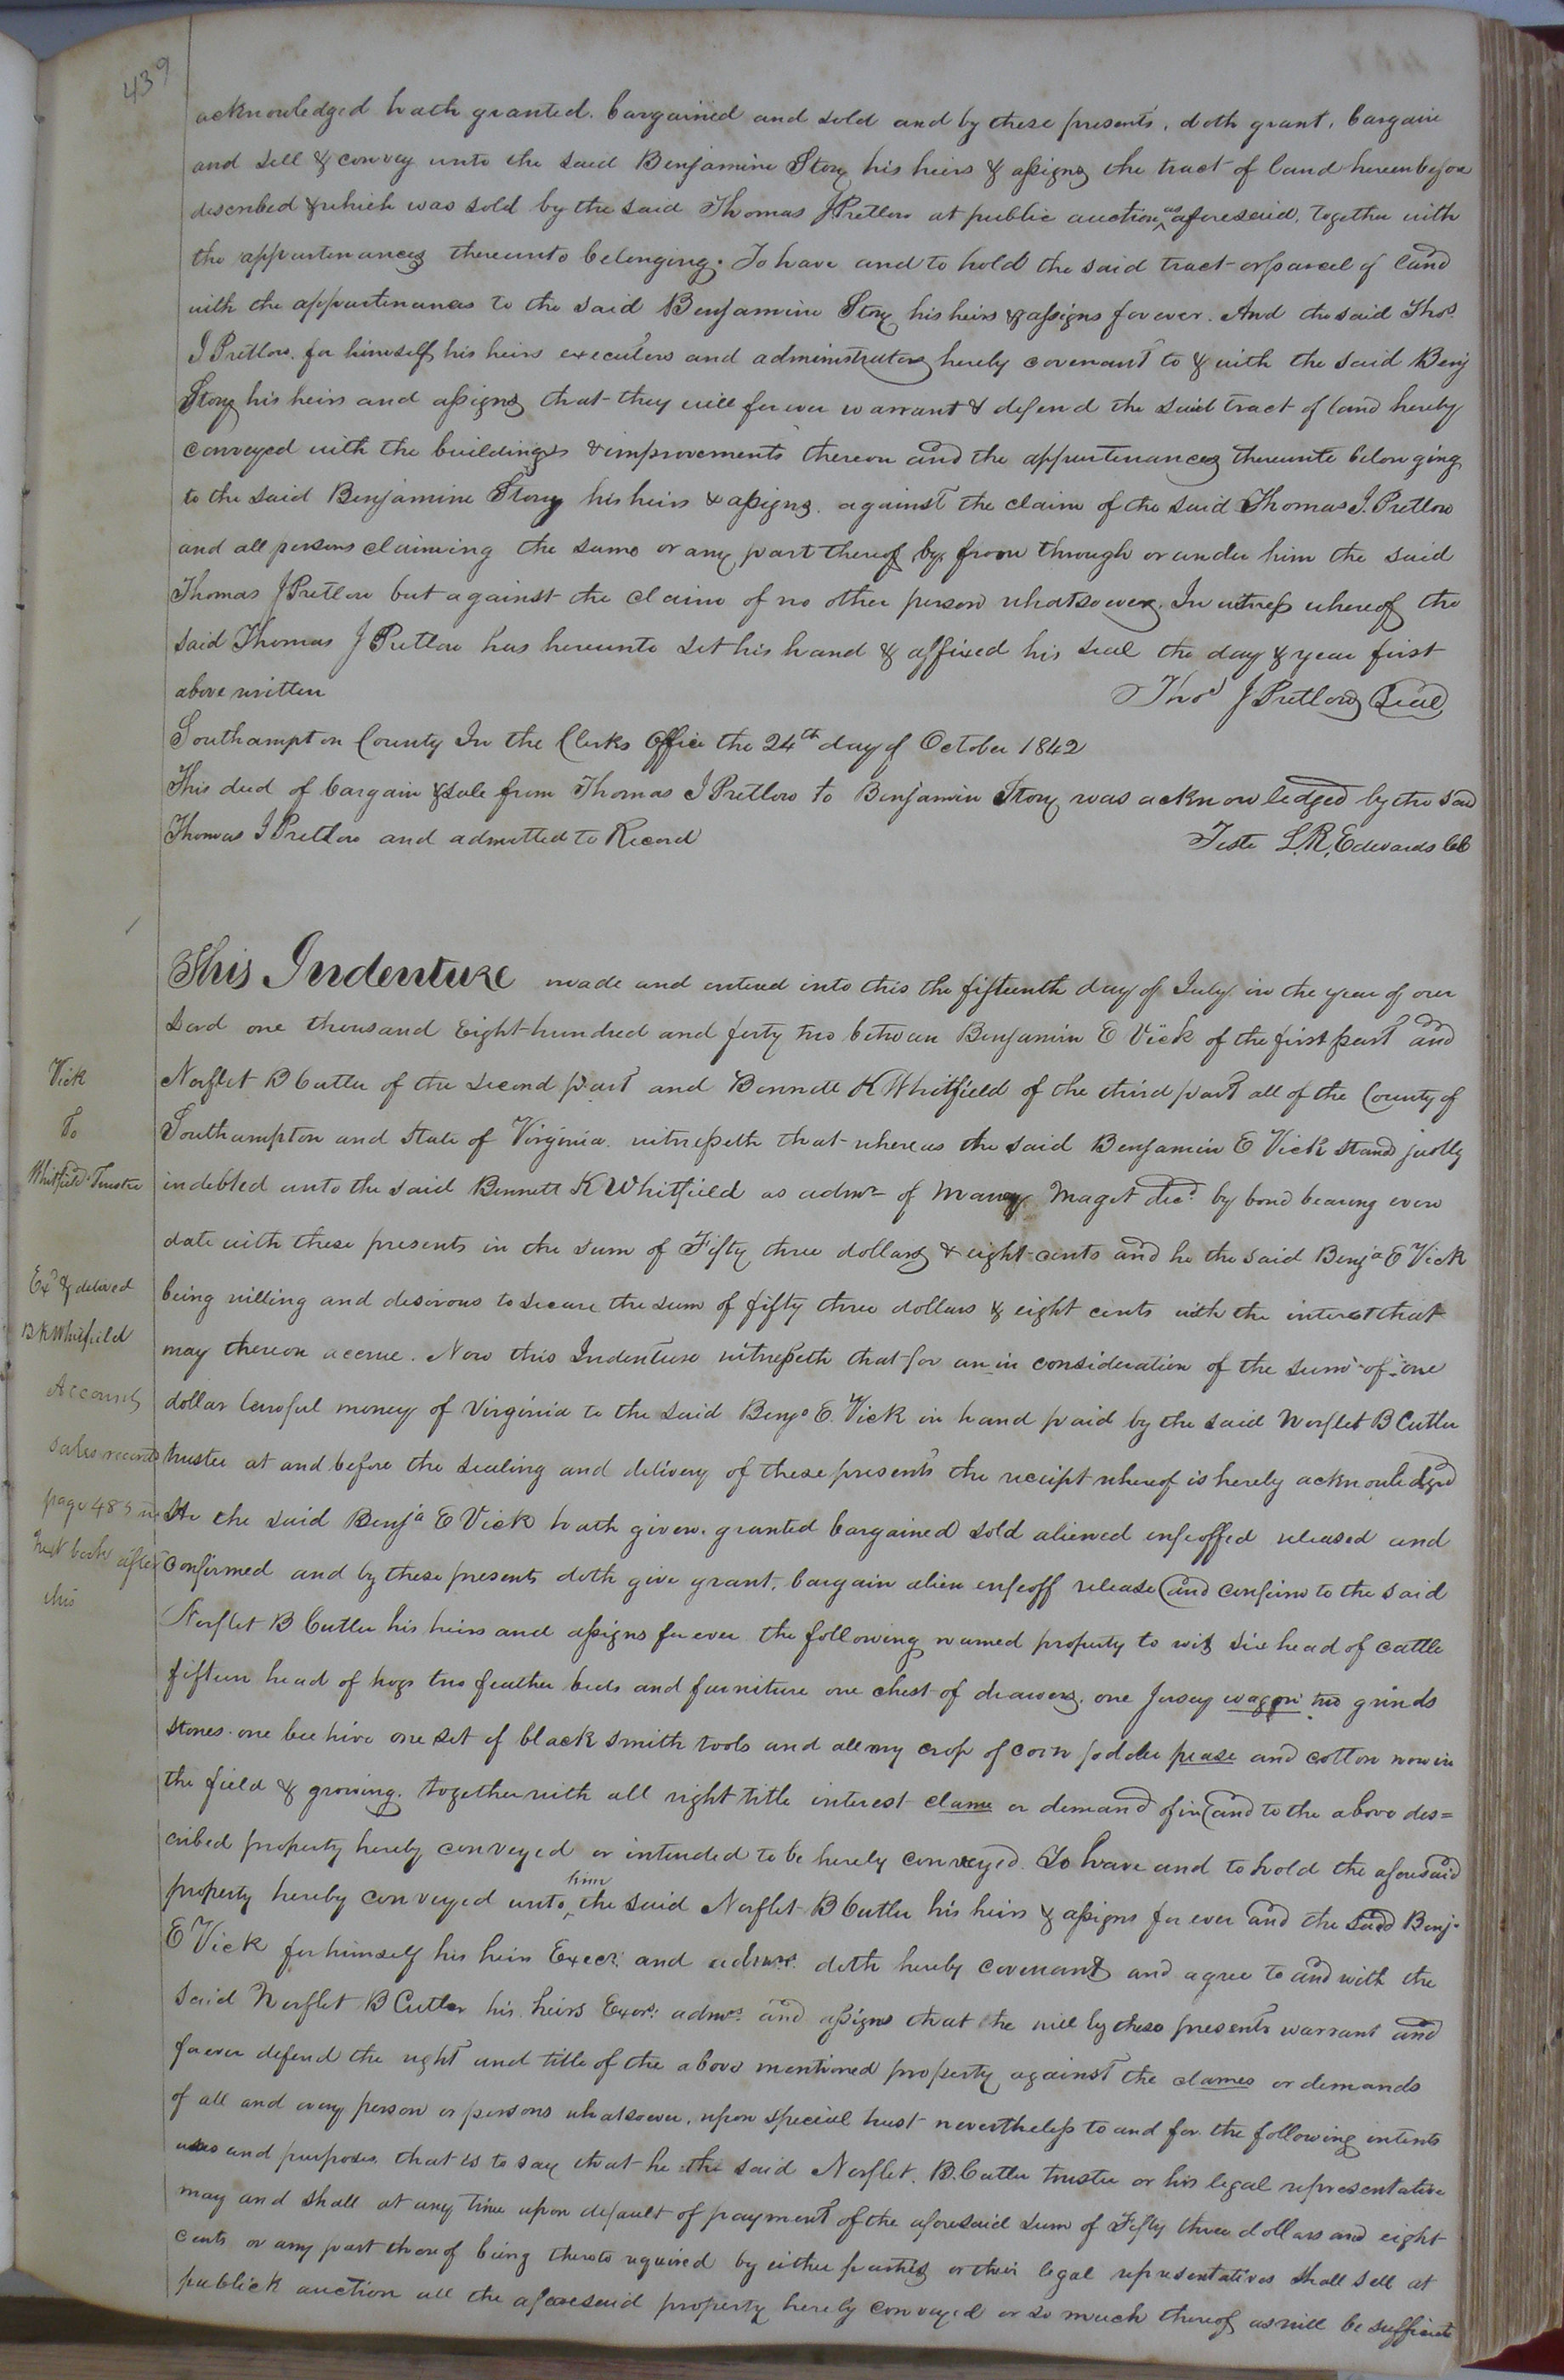 439
acknowledged hath granted. bargained and sold and by these presents, doth grant, bargain
and sell & convey unto the said Benjamine Story his heirs & assigns the tract of land hereinbefore
described & which was sold by the said Thomas J Pretlow at public auction as aforesaid, together with
the appurtenances thereunto belonging. To have and to hold the said tract or parcel of land
with the appurtenances to the said Benjamine Story his heirs & assigns forever. And the said Thos.
J Pretlow. for himself his heirs executors and administrators hereby covenant to & with the said Benj
Story his heirs and assigns that they will forever warrant & defend the said tract of land hereby
conveyed with the buildings & improvements thereon and the appurtenances thereunto belonging
to the said Benjamine Story his heirs & assigns. against the claim of the said Thomas J. Pretlow
and all persons claiming the same or any part thereof by, from through or under him the said
Thomas J Pretlow but against the claim of no other person whatsoever. In witness whereof the
said Thomas J Pretlow has hereunto set his hand & affixed his seal the day & year first
above written
Thos J Pretlow Seal
Southampton County In the Clerks Office the 24th day of October 1842
This deed of bargain & sale from Thomas J Pretlow to Benjamin Story was acknowledged by the said
Thomas J Pretlow and admitted to Record
Teste L.R. Edwards
This Indenture made and entered into this the fifteenth day of July in the year of our
Lord one thousand Eight hundred and forty two between Benjamin E Vick of the first part and
Vick
Norflet B Cutler of the second part and Bennett K Whitfield of the third part all of the County of
To
Southampton and State of Virginia. witnesseth that whereas the said Benjamin E Vick stand justly
Whitfield Trustee
indebted unto the said Bennett K Whitfield as admr of Maget decd by bond bearing even
date with these presents in the sum of Fifty three dollars & eight cents and he the said Benja E Vick
Exd & delived
being willing and desirous to secure the sum of fifty three dollars & eight cents with the interest that
B K Whitfield
may thereon accrue. Now this Indenture witnesseth that for an in consideration of the sum of one
Account
dollar lawful money of Virginia to the said Benja E. Vick in hand paid by the said Norflet B Cutler
sales record
trustee at and before the sealing and delivery of these presents the receipt whereof is hereby acknowledged
page 485
He the said Benja E Vick hath given. granted bargained sold aliened enfeoffed released and
next book after
confirmed and by these presents doth give grant, bargain alien enfeoff release and confirm to the said
this
Norflet B Cutler his heirs and assigns forever the following named property to wit six head of cattle
fifteen head of hogs two feather beds and furniture one chest of drawers. one Jersey wagon two grinds
stones. one bee hive one set of black smith tools and all my crop of corn fodder pease and cotton now in
the field & growing. together with all right title interest clame or demand of in and to the above des=
cribed property hereby conveyed or intended to be hereby conveyed. To have and to hold the aforesaid
property hereby conveyed unto him the said Norflet B Cutler his heirs & assigns for ever and the said Benja
E Vick for himself his heirs Execrs. and admrs. doth hereby covenant and agree to and with the
said Norflet B Cutler his heirs Exors. admrs. and assigns that he will by these presents warrant and
forever defend the right and title of the above mentioned property against the clames or demands
of all and every person or persons whatsoever, upon special trust nevertheless to and for the following intents
uses and purposes. that is to say that he the said Norflet. B. Cutler trustee or his legal representative
may and shall at any time upon default of payment of the aforesaid sum of Fifty three dollars and eight
cents or any part thereof being thereto required by either parties or their legal representatives shall sell at
publick auction all the aforesaid property hereby conveyed or so much thereof as will be sufficient